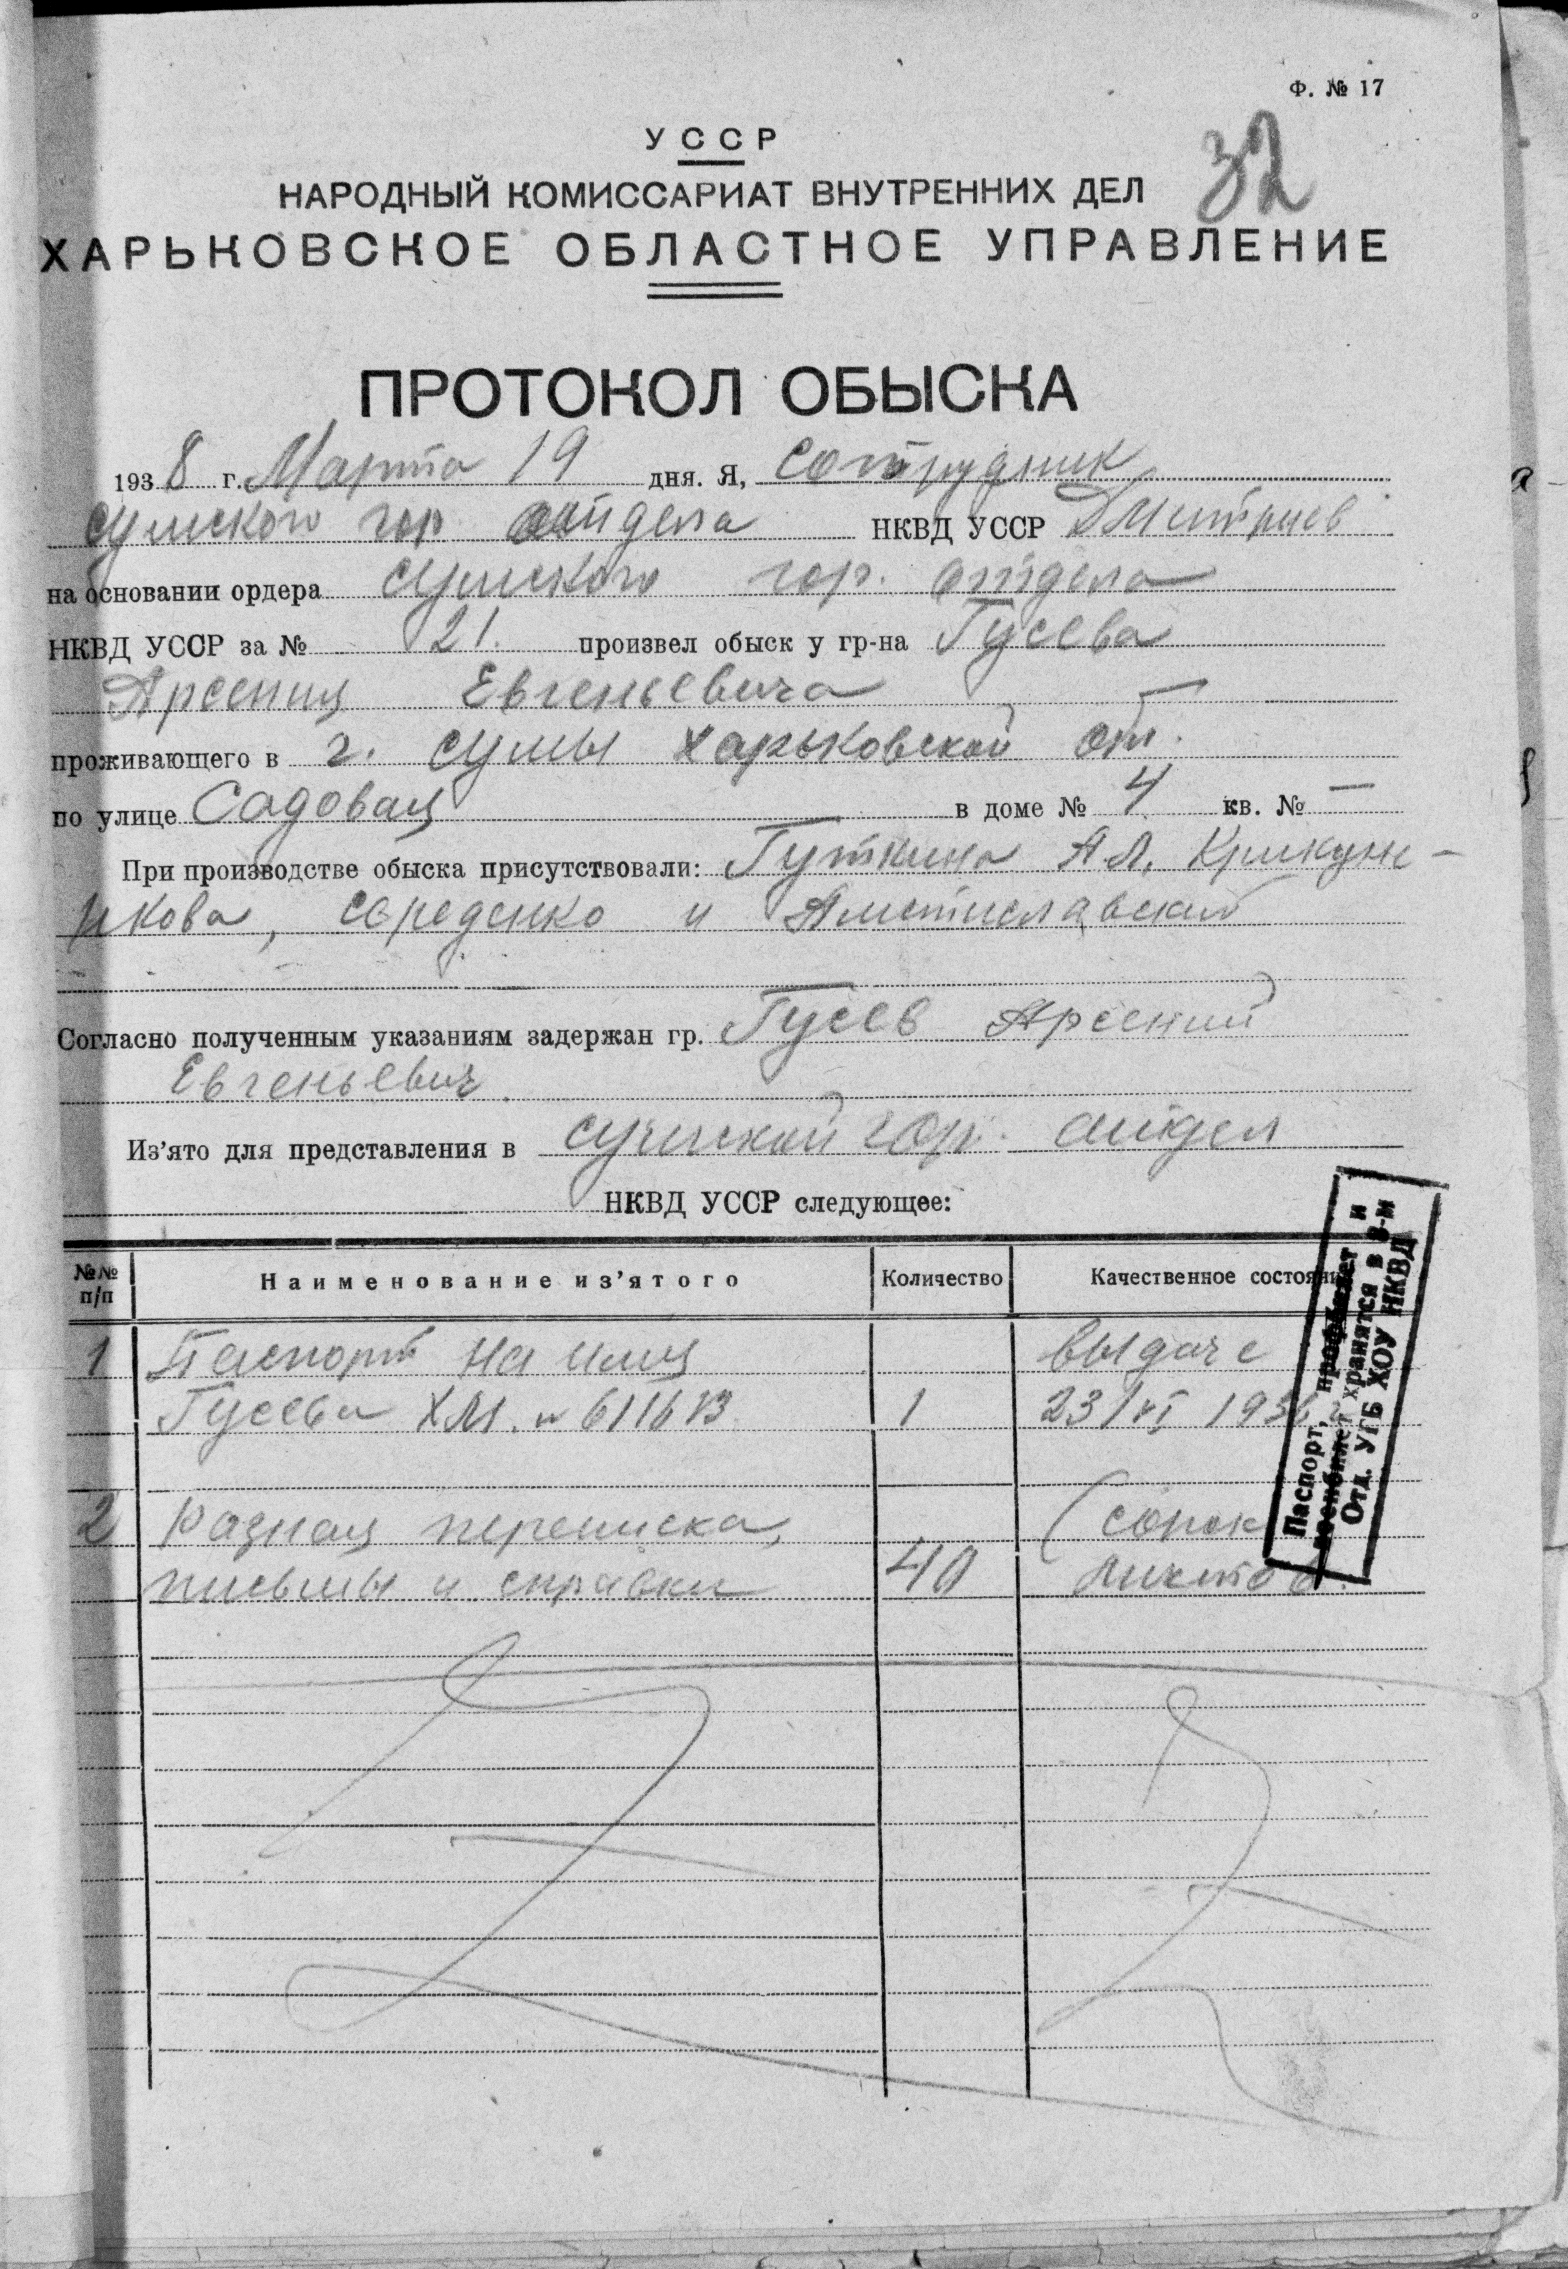 Ф. № 17
32
УССР
НАРОДНЫЙ КОМИССАРИАТ ВНУТРЕННИХ ДЕЛ
ХАРЬКОВСКОЕ ОБЛАСТНОЕ УПРАВЛЕНИЕ
ПРОТОКОЛ ОБЫСКА
1938 г. Марта 19 дня. Я, сотрудник
сумского гор отдела НКВД УССР Дмитриев
на основании ордера сумского гор. отдела
НКВД УССР за № 21. произвел обыск у гр-на Гусева
Арсения Евгеньевича —
проживающего в г. Сумы Харьковской обл.
по улице Садовая в доме № 4 кв. № —
При производстве обыска присутствовали: Гуткина А Л.
и
Согласно полученным указаниям задержан гр. Гусев Арсений
Евгеньевич.
Из’ято для представления в сумской гор. отдел
НКВД УССР следующее:
№№ п/п Наименование из’ятого Количество Качественное состояни
1 Паспорт на имя выдаче
Гусева ХМ. № 1 23/VI 193
2 Разная переписка, (сорок
письмы и справки 40 листов.
Паспорт, профбилет и
военбилет хранятся в 8-м
Отд. УГБ ХОУ НКВД